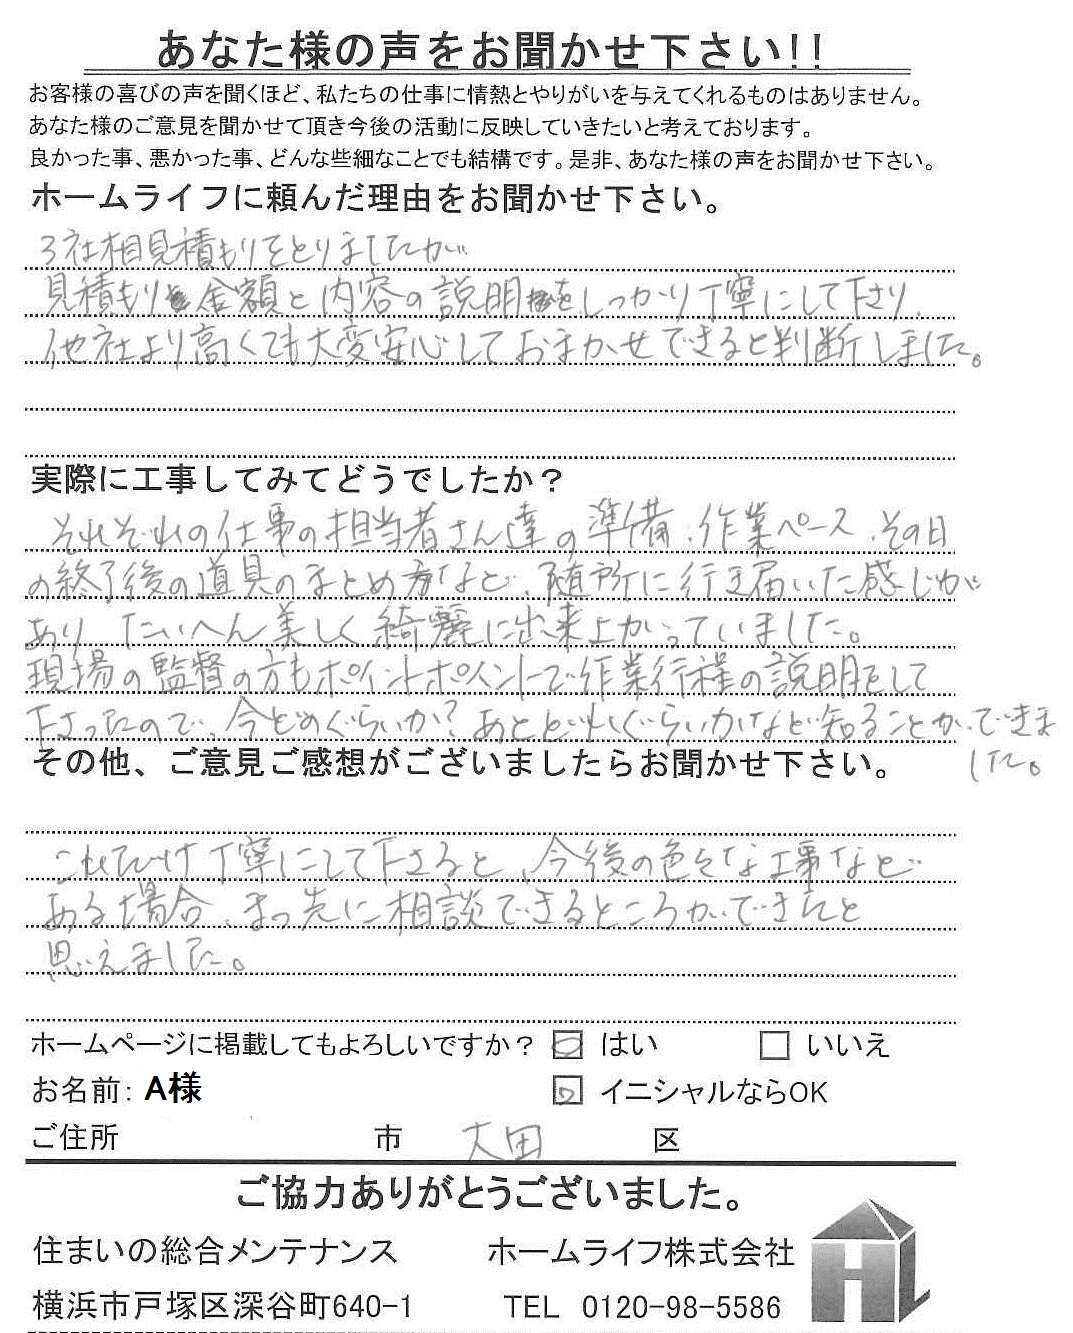 あなた様の声をお聞かせ下さい!!
お客様の喜びの声を聞くほど、私たちの仕事に情熱とやりがいを与えてくれるものはありません。
あなた様のご意見を聞かせて頂き今後の活動に反映していきたいと考えております。
良かった事、悪かった事、どんな些細なことでも結構です。是非、あなた様の声をお聞かせ下さい。
ホームライフに頼んだ理由をお聞かせ下さい。
3社相見積もりをとりましたが
見積もり金額と内容の説明をしっかり丁寧にして下さり、
他社より高くても大変安心しておまかせできると判断しました。
実際に工事してみてどうでしたか?
それぞれの仕事の担当者さん達の準備、作業ペース、その日
の終了後の道具のまとめ方など、随所に行き届いた感じが
あり たいへん美しく綺麗に出来上がっていました。
現場の監督の方もポイントポイントで作業行程の説明をして
下さったので、今どのぐらいか?あとどれぐらいかなど知ることができま
した。
その他、ご意見ご感想がございましたらお聞かせ下さい。
これだけ丁寧にして下さると、今後の色々な工事など
ある場合、まっ先に相談できるところができたと
思えました。
ホームページに掲載してもよろしいですか? はい いいえ
お名前: A様 イニシャルならOK
ご住所 市 大田 区
ご協力ありがとうございました。
住まいの総合メンテナンス ホームライフ株式会社
横浜市戸塚区深谷町640-1 TEL 0120-98-5586
HL